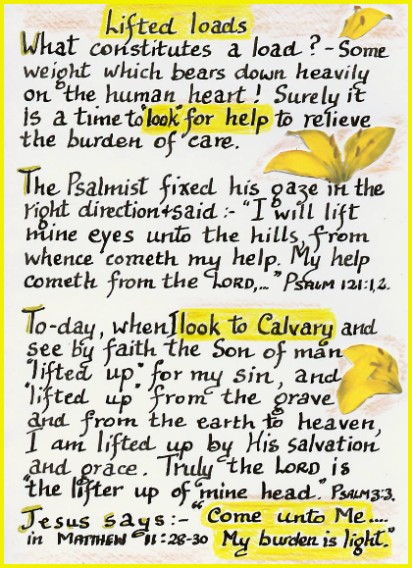 Lifted loads
What constitutes a load? - Some
weight which bears down heavily
on the human heart! Surely it
is a time to "look" for help to relieve
the burden of care.
The Psalmist fixed his gaze in the
right direction & said :- "I will lift
mine eyes unto the hills, from
whence cometh my help. My help
cometh from the LORD,..." PSALM 121:1,2.
To-day, when I look to Calvary and
see by faith the Son of man
"lifted up" for my sin, and
"lifted up" from the grave
and from the earth to heaven,
I am lifted up by His salvation
and grace. Truly the LORD is
"the lifter up of mine head." PSALM 3:3.
Jesus says:- "Come unto Me....
in MATTHEW 11:28-30 My burden is light."